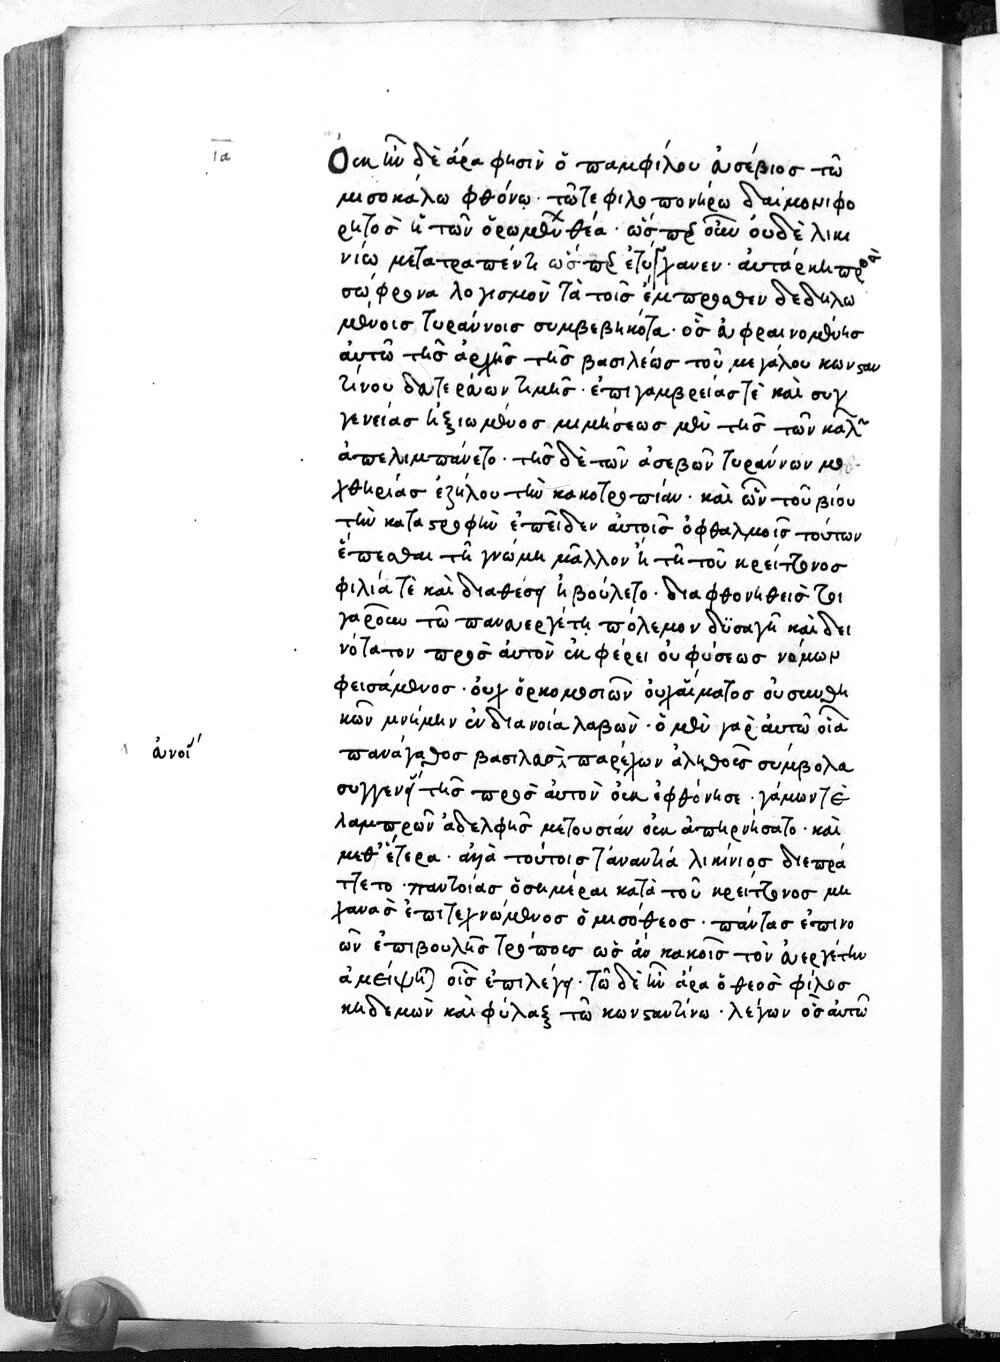 ια
Οὐκ ἦν δὲ ἄρα φησὶν ὁ παμφίλου εὐσέβιος τῶ
μισοκάλω φθόνω· τῶτε φιλοπονήρω δαίμονι φο
ρητὸς ἡ τῶν ὁρωμένων θέα· ὥσπερ οὖν οὐδὲ λικι
νίω μετατραπέντι ὥσπερ ἐτύγχανεν· αὐτάρκη πρὸς
σώφρονα λογισμὸν τὰ τοῖς ἔμπροσθεν δεδηλω
μένοις τυράννοις συμβεβηκότα· ὃς εὐφραινομένης
αὐτῶ τῆς ἀρχῆς τῆς βασιλέως τοῦ μεγάλου κωνσταν
τίνου δευτερείων τιμῆς· ἐπιγαμβρείας τὲ καὶ συγ
γενείας ἠξιωμένος μιμήσεως μὲν τῆς τῶν καλῶν
ἀπελιμπάνετο· τῆς δὲ τῶν ἀσεβῶν τυράννων μο
χθηρίας ἐζήλου τὴν κακοτροπίαν· καὶ ὧν τοῦ βίου
τὴν καταστροφὴν ἐπεῖδεν αὐτοῖς ὀφθαλμοῖς τούτων
ἕπεσθαι τῆ γνώμη μᾶλλον ἢ τῆ τοῦ κρείττονος
φιλία τὲ καὶ διαθέσει ἠβούλετο· διαφθονηθεὶς τοι
γαροῦν τῶ πανευεργέτη πόλεμον δυσαγῆ καὶ δει
νότατον πρὸς αὐτὸν ἐκφέρει οὐ φύσεως νόμων
φεισάμενος· οὐχ ὁρκομοσιῶν οὐχ αἵματος οὐ συνθη
κῶν μνήμην ἐν διανοία λαβών· ὁ μὲν γὰρ αὐτῶ οἷα
πανάγαθος βασιλεὺς παρέχων ἀληθοῦς σύμβολα
εὐνοί
συγγενείας τῆς πρὸς αὐτὸν οὐκ ἐφθόνησε· γάμων τὲ
λαμπρῶν ἀδελφῆς μετουσίαν οὐκ ἀπηρνήσατο· καὶ
μεθ' ἕτερα· ἀλλὰ τούτοις τἀναντία λικίνιος διεπρά
ττετο· παντοίας ὁσημέραι κατὰ τοῦ κρείττονος μη
χανὰς ἐπιτεχνώμενος ὁ μισόθεος· πάντας ἐπινο
ῶν ἐπιβουλῆς τρόπους ὡς ἂν κακοῖς τὸν εὐεργέτην
ἀμείψηται οἷς ἐπιλέγει· τῶ δὲ ἦν ἄρα ὁ θεὸς φίλος
κηδεμὼν καὶ φύλαξ τῶ κωνσταντίνω· λέγων ὃς αὐτῶ